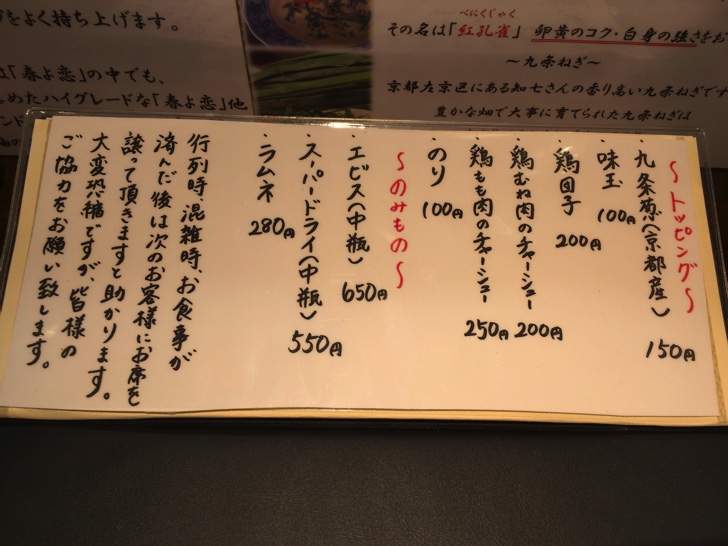 をよく持ち上げます。
は「春よ恋」の中でも、
めたハイグレードな「春よ恋」他
べにくじゃく
その名は「紅孔雀」 卵黄のコク・白身の強さをお
～九条ねぎ～
京都左京区にある知七さんの香り高い九条ねぎです
豊かな畑で大事に育てられた九条ねぎは
～トッピング～
・九条葱(京都産) 150円
・味玉 100円
・鶏団子 200円
・鶏むね肉のチャーシュー 200円
・鶏もも肉のチャーシュー 250円
・のり 100円
～のみもの～
・エビス(中瓶) 650円
・スーパードライ(中瓶) 550円
・ラムネ 280円
行列時、混雑時、お食事が
済んだ後は次のお客様にお席を
譲って頂きますと助かります。
大変恐縮ですが、皆様の
ご協力をお願い致します。